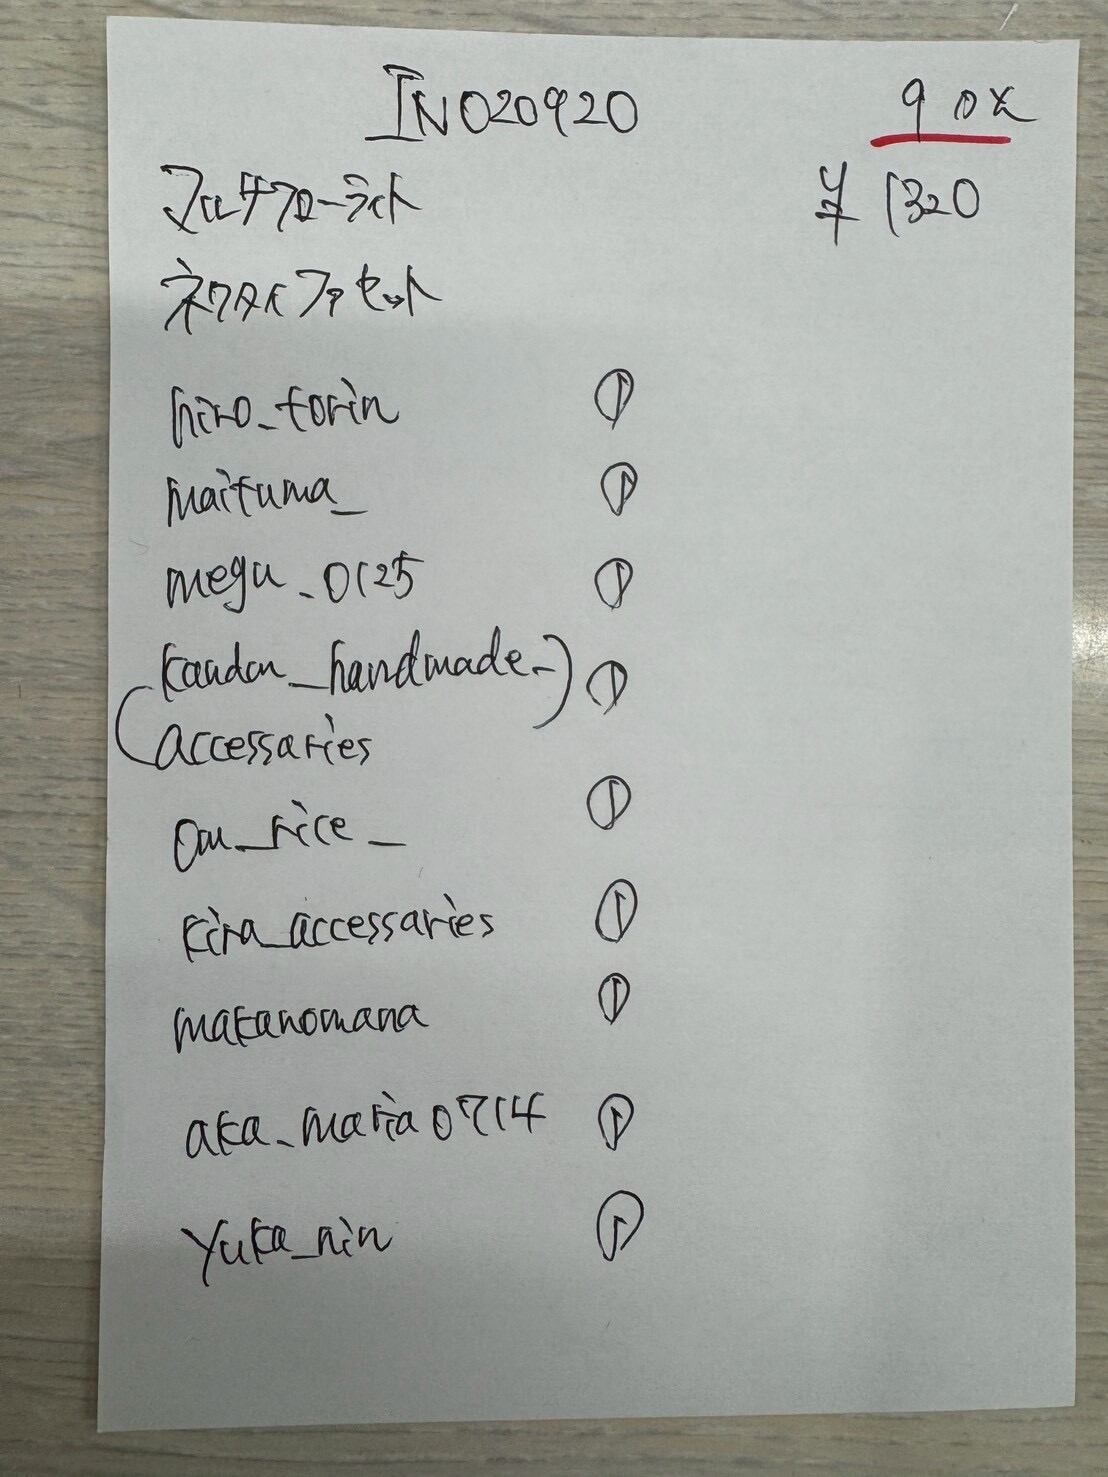 INO20920
9 ox
マルチフローライト
¥1320
ネクタイファセット
hiro_torin ①
maituma_ ①
megu_0125 ①
kandan_handmade_ ①
accessaries
om_rice_ ①
kira_accessaries ①
makanomana ①
aka_maria0714 ①
yuka_nin ①